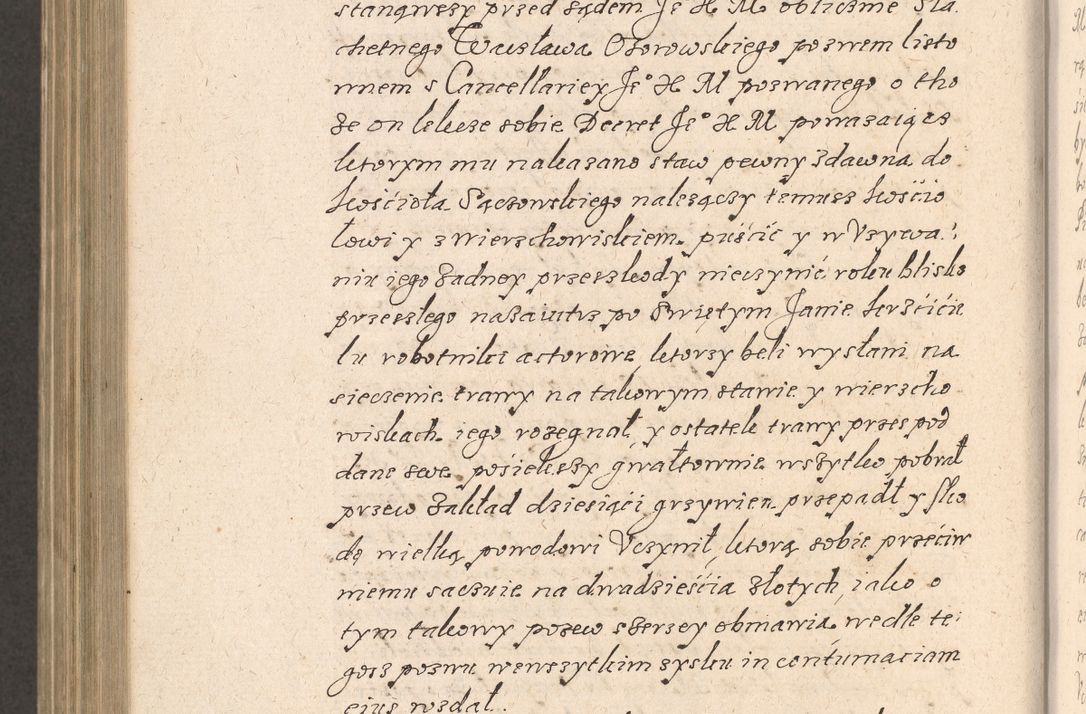 stanąwszy przed sądem Jº X M obliczme Sla
chetnego Wacsława Ożorowskiego pozwem listo
wnem s Cancellariey Jº X M pozwanego o tho
że on lekcze sobie Decret Jº X M powazaiącs
ktorym mu nakazano staw pewny zdawna do
kościoła Sączowskiego należączy temusz kościo
łowi y z wierzchowiskiem puścić y w Vzywa
niu iego żadney przeszkody nieczynić roku blisko
przeszłego nazaiutrz po Świętym Janie krzcicie
lu robotniki actorowe ktorzy beli wysłani na
sieczenie trawy na takowym stawie y wierzcho
wiskach iego rozegnał y ostatek trawy przes pod
dane swe pośiekszy gwałtownie wszytko pobrał
przeco zakład dziesiąci grzywien przepadł y sko
dę wielką powodowi Vczynił ktorą sobie przeciw
niemu saczuie na dwadzieścia złotych iako o
tym takowy pozew szerzey obmawia wedle te
gosz pozwu wewszytkim zysku in contumaciam
eius wzdał.